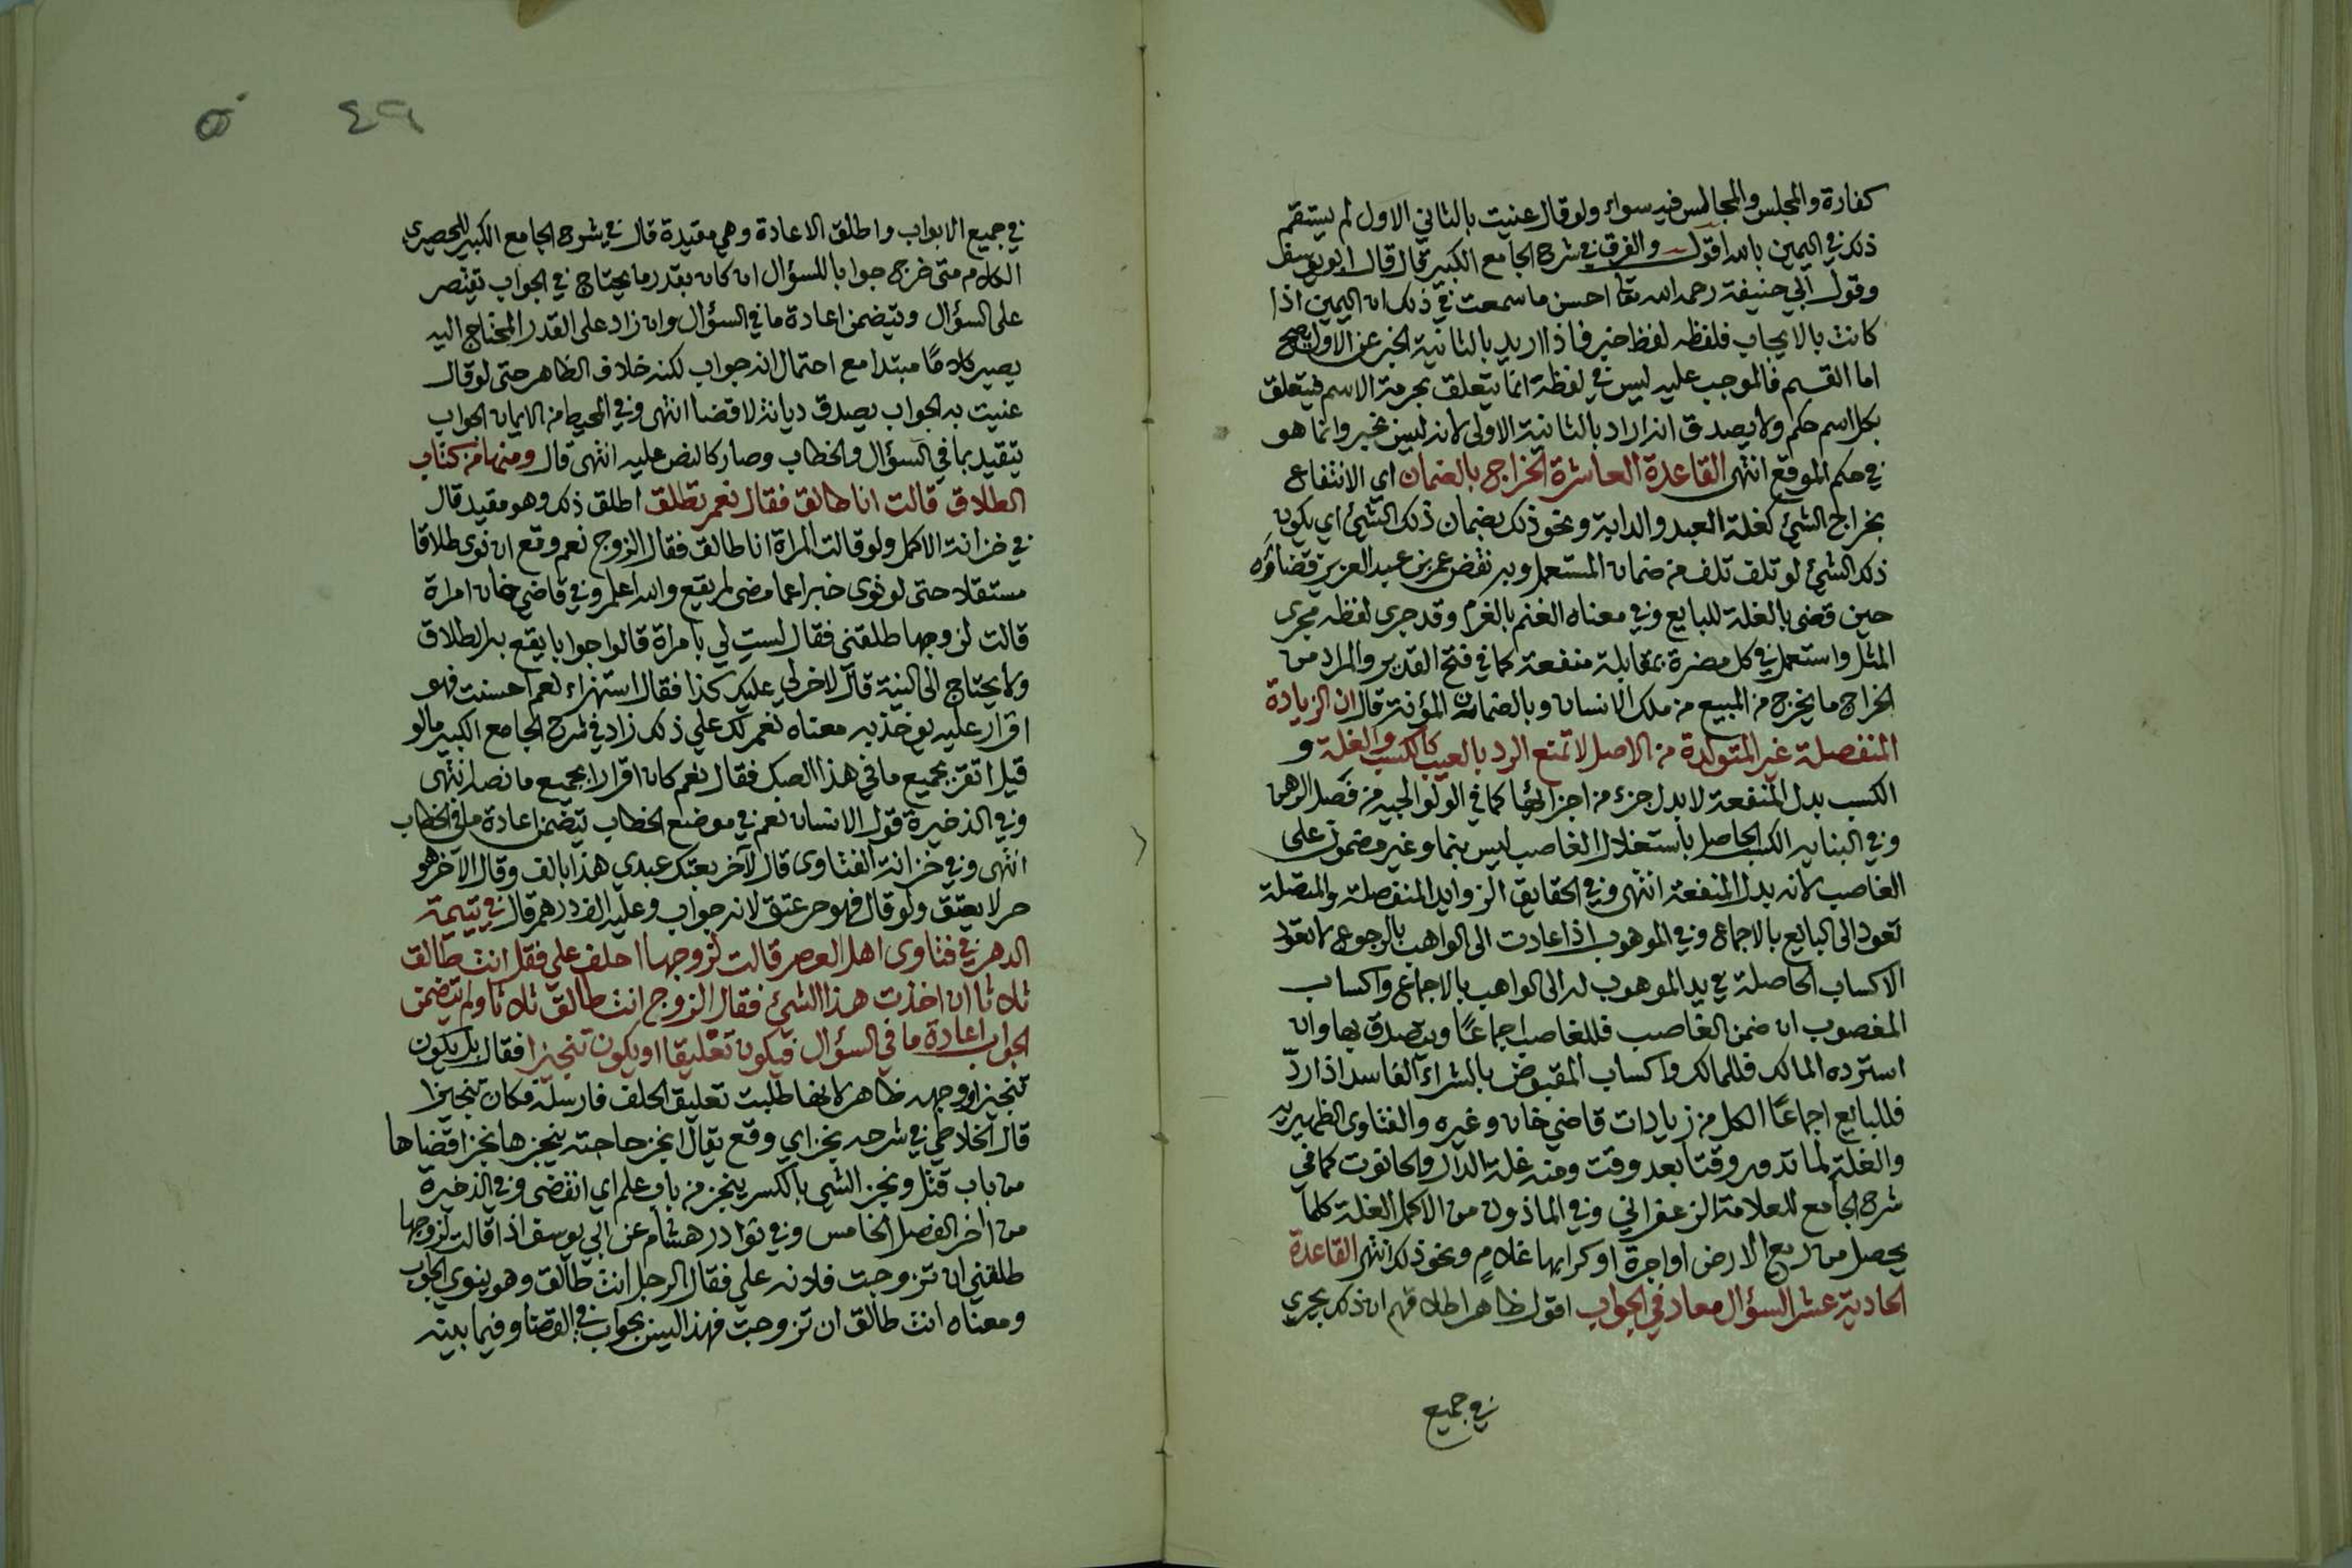 كفارة والمجلس والمجالس فيه سواء ولو قال عنيت بالثاني الاول لم يستقم
ذلك في اليمين بالله اقول والفرق في شرح الجامع الكبير قال قال ابو يوسف
وقول ابي حنيفة رحمه الله تعا احسن ما سمعت في ذلك ان اليمين اذا
كانت بالايجاب فلفظه لفظ خبر فاذا اريد بالثانية الخبر عن الاول يصح
اما القسم فالموجب عليه ليس في لفظة انما يتعلق بحرمة الاسم فيتعلق
بكل اسم حكم ولا يصدق انه اراد بالثانية الاولى لانه ليس بخبر وانما هو
في حكم الموقع انتهى القاعدة العاشرة الخراج بالضمان اي الانتفاع
بخراج الشئ كغلة العبد والدابة ونحو ذلك بضمان ذلك الشئ اي يكون
ذلك الشئ لو تلف تلف من ضمان المستعمل وبه نقض عمر بن عبد العزيز قضاؤه
حين قضى بالغلة للبايع وفي معناه الغنم بالغرم وقد جرى لفظه مجرى
المثل واستعمل في كل مضرة بمقابلة منفعة كما في فتح القدير والمراد من
الخراج ما يخرج من المبيع من ملك الانسان وبالضمان المؤنة قال ان الزيادة
المنفصلة غير المتولدة من الاصل لا تمنع الرد بالعيب كالكسب والغلة و
الكسب بدل المنفعة لا بدل جزء من اجزائها كما في الولوالجيه من فصل الرهن
وفي البنايه الكسب الحاصل باستغلال الغاصب ليس بنما وغير مضمون على
الغاصب لانه بدل المنفعة انتهى وفي الحقايق الزوايد المنفصلة والمتصلة
تعود الى البايع بالاجماع وفي الموهوب اذا عادت الى الواهب بالرجوع لا تعود
الاكساب الحاصلة في يد الموهوب له الى الواهب بالاجماع واكساب
المغصوب ان ضمن الغاصب فللغاصب اجماعًا ويتصدق بها وان
استرده المالك فللمالك واكساب المقبوض بالشراء الفاسد اذا ردّ
فللبايع اجماعًا الكل من زيادات قاضي خان وغيره والفتاوى الظهيريه
والغلة لما تدور وقتا بعد وقت ومنه غلة الدار والحانوت كما في
شرح الجامع للعلامة الزعفراني وفي الماذون من الاكمل الغلة كلما
يحصل من ريع الارض او اجرة او كرايها غلامٍ ونحو ذلك انتهى القاعدة
الحادية عشر السؤال معاد في الجواب اقول ظاهر اطلاقهم ان ذلك يجري
في جميع
٤٩
في جميع الابواب واطلق الاعادة وهي مقيدة قال في شرح الجامع الكبير للحصيري
الكلام متى خرج جوابا للسؤال ان كان بقدر ما يحتاج في الجواب تقتصر
على السؤال ويتضمن اعادة ما في السؤال وان زاد على القدر المحتاج اليه
يصير كلامًا مبتدا مع احتمال انه جواب لكنه خلاف الظاهر حتى لو قال
عنيت به الجواب يصدق ديانة لا قضا انتهى وفي المحيط من الايمان الجواب
يتقيد بما في السؤال والخطاب وصار كالنص عليه انتهى قال ومنها من كتاب
الطلاق قالت انا طالق فقال نعم تطلق اطلق ذلك وهو مقيد قال
في خزانة الاكمل ولو قالت المراة انا طالق فقال الزوج نعم وقع ان نوى طلاقا
مستقلا حتى لو نوى خبرا عما مضى لم يقع والله اعلم وفي قاضي خان امراة
قالت لزوجها طلقني فقال لست لي بامراة قالوا جوابا يقع به الطلاق
ولا يحتاج الى النية قال لاخر لي عليك كذا فقال استهزاء نعم احسنت فهو
اقرار عليه يوخذ به معناه نعم لك علي ذلك زاد في شرح الجامع الكبير ما لو
قيل اتقر بجميع ما في هذا الصك فقال نعم كان اقرارا بجميع ما نصه انتهى
وفي الذخيرة قول الانسان نعم في موضع الخطاب يتضمن اعادة ما في الخطاب
انتهى وفي خزانة الفتاوى قال لآخر بعتك عبدي هذا بالف وقال الآخر هو
حر لا يعتق ولو قال فهو حر عتق لانه جواب وعليه الف درهم قال في يتيمة
الدهر في فتاوى اهل العصر قالت لزوجها احلف علي فقل انت طالق
ثلاثا ان اخذت هذا الشئ فقال الزوج انت طالق ثلاثا ولم يتضمن
الجواب اعادة ما في السؤال فيكون تعليقا او يكون تنجيزا فقال بل يكون
تنجيزا ووجهه ظاهر لانها طلبت تعليق الحلف فارسله فكان تنجيزا
قال الخلاطي في شرحه ينجز اي وقع يقال انجز حاجته ينجزها نجزا قضاها
من باب قتل ونجز الشئ بالكسر ينجز من باب علم اي انقضى وفي الذخيرة
من اخر الفصل الخامس وفي نوادر هشام عن ابي يوسف اذا قالت لزوجها
طلقني ان تزوجت فلانه علي فقال الرجل انت طالق وهو ينوي الجواب
ومعناه انت طالق ان تزوجت فهذا ليس بجواب في القضا وفيما بينه